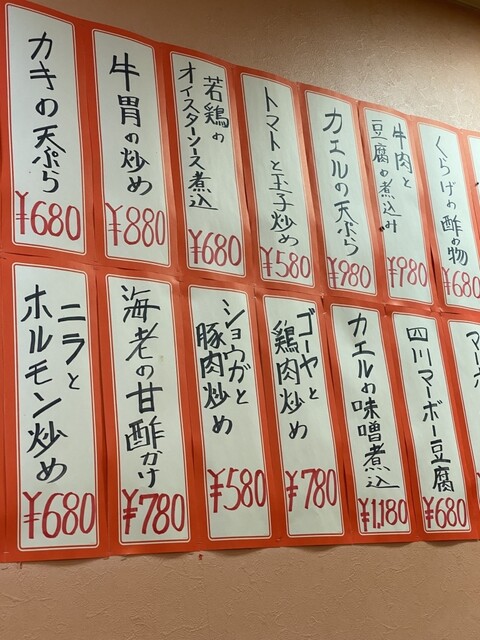 カキの天ぷら
¥680
牛胃の炒め
¥880
若鶏の
オイスターソース煮込
¥680
トマトと玉子炒め
¥580
カエルの天ぷら
¥980
牛肉と
豆腐の煮込み
¥980
くらげの酢の物
¥680
ニラと
ホルモン炒め
¥680
海老の甘酢かけ
¥780
ショウガと
豚肉炒め
¥580
ゴーヤと
鶏肉炒め
¥780
カエルの味噌煮込
¥1,180
四川マーボー豆腐
¥680
マーボ